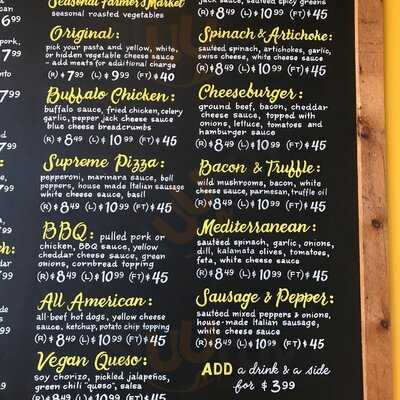 Seasonal Farmer's Market
seasonal roasted vegetables
Original:
pick your pasta and yellow, white,
or hidden vegetable cheese sauce
- add meats for additional charge
(R) $7⁹⁹ (L) $9⁹⁹ (FT) $40
Buffalo Chicken:
buffalo sauce, fried chicken, celery
garlic, pepper jack cheese sauce
blue cheese breadcrumbs
(R) $8⁴⁹ (L) $10⁹⁹ (FT) $45
Supreme Pizza:
pepperoni, marinara sauce, bell
peppers, house made Italian sausage
white cheese sauce, basil
(R) $8⁴⁹ (L) $10⁹⁹ (FT) $45
BBQ: pulled pork or
chicken, BBQ sauce, yellow
cheddar cheese sauce, green
onions, cornbread topping
(R) $8⁴⁹ (L) $10⁹⁹ (FT) $45
All American:
all-beef hot dogs, yellow cheese
sauce, ketchup, potato chip topping
(R) $8⁴⁹ (L) $10⁹⁹ (FT) $45
Vegan Queso:
soy chorizo, pickled jalapeños,
green chili "queso", salsa
(R) $8⁴⁹ (L) $10⁹⁹ (FT) $45
jack sauce, sautéed spicy greens
(R) $8⁴⁹ (L) $10⁹⁹ (FT) $45
Spinach & Artichoke:
sautéed spinach, artichokes, garlic,
swiss cheese, white cheese sauce
(R) $8⁴⁹ (L) $10⁹⁹ (FT) $45
Cheeseburger:
ground beef, bacon, cheddar
cheese sauce, topped with
onions, lettuce, tomatoes and
hamburger sauce
(R) $8⁴⁹ (L) $10⁹⁹ (FT) $45
Bacon & Truffle:
wild mushrooms, bacon, white
cheese sauce, parmesan, truffle oil
(R) $8⁴⁹ (L) $10⁹⁹ (FT) $45
Mediterranean:
sautéed spinach, garlic, onions,
dill, kalamata olives, tomatoes,
feta, white cheese sauce
(R) $8⁴⁹ (L) $10⁹⁹ (FT) $45
Sausage & Pepper:
sautéed mixed peppers & onions,
house-made Italian sausage,
white cheese sauce
(R) $8⁴⁹ (L) $10⁹⁹ (FT) $45
ADD a drink & a side
for $3⁹⁹